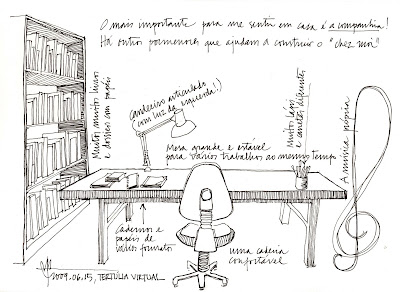 O mais importante para me sentir em casa é a companhia!
Há outros pormenores que ajudam a construir o "chez moi"
Muitos muitos livros
e dossiers com papéis
Candeeiro articulado
(com luz da esquerda!)
Mesa grande e estável
para vários trabalhos ao mesmo tempo
Muitos lápis
e canetas diferentes
A música própria
Cadernos e
papéis de
vários formatos
uma cadeira
confortável
2009.06.15, TERTÚLIA VIRTUAL